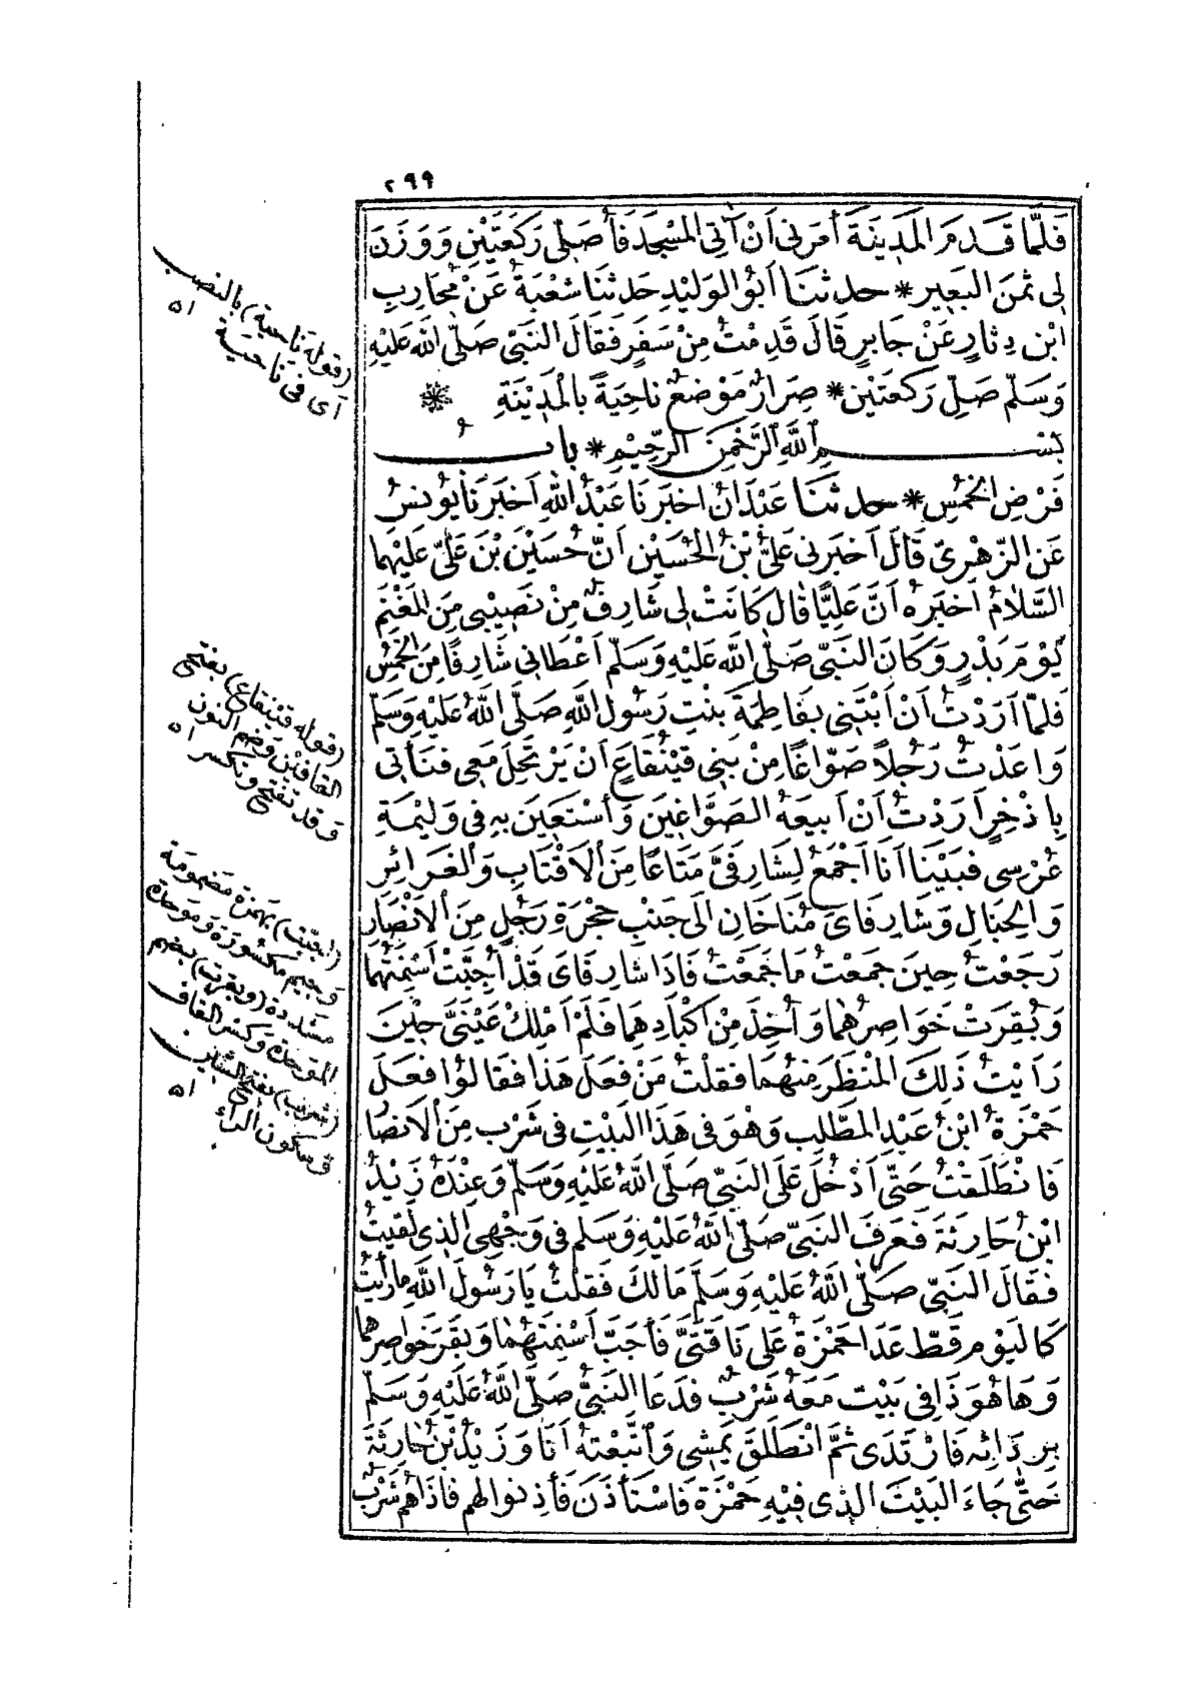 ٢٩٩
فَلَمَّا قَدِمَ الْمَدِينَةَ أَمَرَنِى أَنْ آتِىَ الْمَسْجِدَ فَأُصَلِّىَ رَكْعَتَيْنِ وَوَزَنَ
لِى ثَمَنَ الْبَعِيرِ * حدثنا أَبُو الْوَلِيْدِ حَدثنَا شُعْبَةُ عَنْ مُحَارِبِ
ابْنِ دِثَارٍ عَنْ جَابِرٍ قَالَ قَدِمْتُ مِنْ سَفَرٍ فَقَالَ النَّبىُّ صَلَّى اللّٰهُ عَلَيْهِ
وَسَلَّم صَلِّ رَكعَتَيْنِ * صِرَارٌ مَوْضعٌ نَاحِيَةً بالْمَدِيْنَةِ *
بسم اللّٰهِ الرَّحْمٰنِ الرَّحِيْمِ * بابُ
فَرْضِ الخُمُسِ * حدثنا عَبْدَانُ اخبَرَنَا عَبْدُ اللّٰهِ أَخبَرَنَا يُونسُ
عَن الزّهْرِىّ قَالَ أَخبَرَنى عَلىُّ بْنُ الحُسَيْنِ أنّ حُسَيْنَ بْنَ عَلىٍّ عَلَيْهِمَا
السَّلَامُ أَخبَرَهُ أَنَّ عَلِيًّا قَالَ كَانَتْ لِى شَارِفٌ مِنْ نَصِيْبِى مِنَ المَغْنَمِ
يَوْمَ بَدْرٍ وَكَانَ النَّبىّ صَلَّى اللّٰه عَلَيْهِ وَسَلَّم أَعْطَانِى شَارِفًا مِنَ الخُمُسِ
فَلمَّا أرَدْتُ أنْ أَبْتَنِى بفَاطِمَةَ بِنْتِ رَسُولِ اللّٰهِ صَلَّى اللّٰهُ عَلَيْهِ وَسَلَّم
وَاعَدْتُ رَجُلاً صَوَّاغًا مِنْ بَنِى قَيْنُقَاعَ أنْ يَرْتَحِلَ مَعِى فنَأتِى
بِاذْخِرٍ أرَدْتُ أنْ أَبيعَهُ الصَوَّاغِينَ وَأسْتَعِينَ بِهِ فى وَلِيْمَةِ
عُرْسِى فبَيْنَا أنَا أجْمَعُ لِشَارِفَىَّ مَتَاعًا مِنَ الأَقْتَابِ وَالْغَرَائِرِ
وَالْحِبَالِ وَشَارِفَاىَ مُنَاخَانِ الَى جَنْبِ حُجْرَةِ رَجُلٍ مِنَ الأَنْصَارِ
رَجَعْتُ حِينَ جَمَعْتُ مَا جَمَعْتُ فَاذَا شَارِفَاىَ قَدْ أُجِبَّتْ أسْنِمَتُهُمَا
وَبُقِرَتْ خَوَاصِرُهُمَا وَأُخِذَ مِنْ أكْبَادِهِمَا فَلَمْ أمْلِكْ عَيْنَىَّ حِيْنَ
رَأيْتُ ذَلِكَ المَنْظَرَ مِنْهُمَا فقلْتُ مَنْ فعَلَ هَذَا فقَالُوا فعَلَ
حَمْزَةُ ابْنُ عَبْدِ المطَّلِبِ وَهْوَ فى هَذَا البَيْتِ فى شَرْبٍ مِنَ الأنصَا
فَانْطَلَقْتُ حَتّى أدْخُلَ عَلَى النَبىّ صَلَّى اللّٰهُ عَلَيْهِ وَسَلَّم وَعِنْدَهُ زَيْدُ
ابْنُ حَارِثةَ فَعَرَفَ النَبىّ صَلَّى اللّٰهُ عَلَيْهِ وَسَلَم فى وَجْهِى الذى لَقيتُ
فقَالَ النَبىّ صَلَّى اللّٰهُ عَلَيْهِ وَسَلَّمَ مَالكَ فقلتُ يَا رَسُولَ اللّٰهِ مَا رَأيْتُ
كَاليَوْمِ قطّ عَدَا حَمْزَةُ عَلَى نَاقَتَىَّ فَأَجَبَّ أسْنِمَتَهُمَا وَبقَرَ خوَاصِرَهُمَا
وَهَا هُوَ ذَا فى بَيْت مَعَهُ شَرْبٌ فدَعَا النَبىُّ صَلَّى اللّٰهُ عَلَيْهِ وَسَلم
برِدَائِه فَارْتَدَى ثمَّ انْطَلقَ يَمْشِى وَاتَّبَعْتُهُ أنَا وَزَيْدُ بْنُ حَارِثةَ
حَتَّى جَاءَ البَيْتَ الذى فِيْهِ حَمْزَة فَاسْتَأذَنَ فَأَذِنوا لهم فَاذَا هُم شَرْبٌ
(قوله نَاحية) بالنصب
أى فى نَاحيَة اه
(قوله قينقاع) بفتح
القافيْن وَضم النون
وَقد تفتح وَتكسر اه
(أجبّت) بهَمزة مَضمومَة
وَجيم مكسُورَة وَموَحدة
مشَددة (وبقرت) بضم
الموَحدة وَكسْر القاف
(شرب) بفتح الشين
وَسكون الراء اه